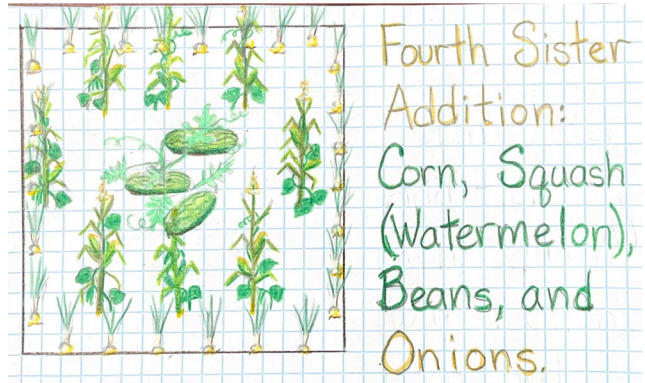 Fourth Sister
Addition:
Corn, Squash
(Watermelon),
Beans, and
Onions.